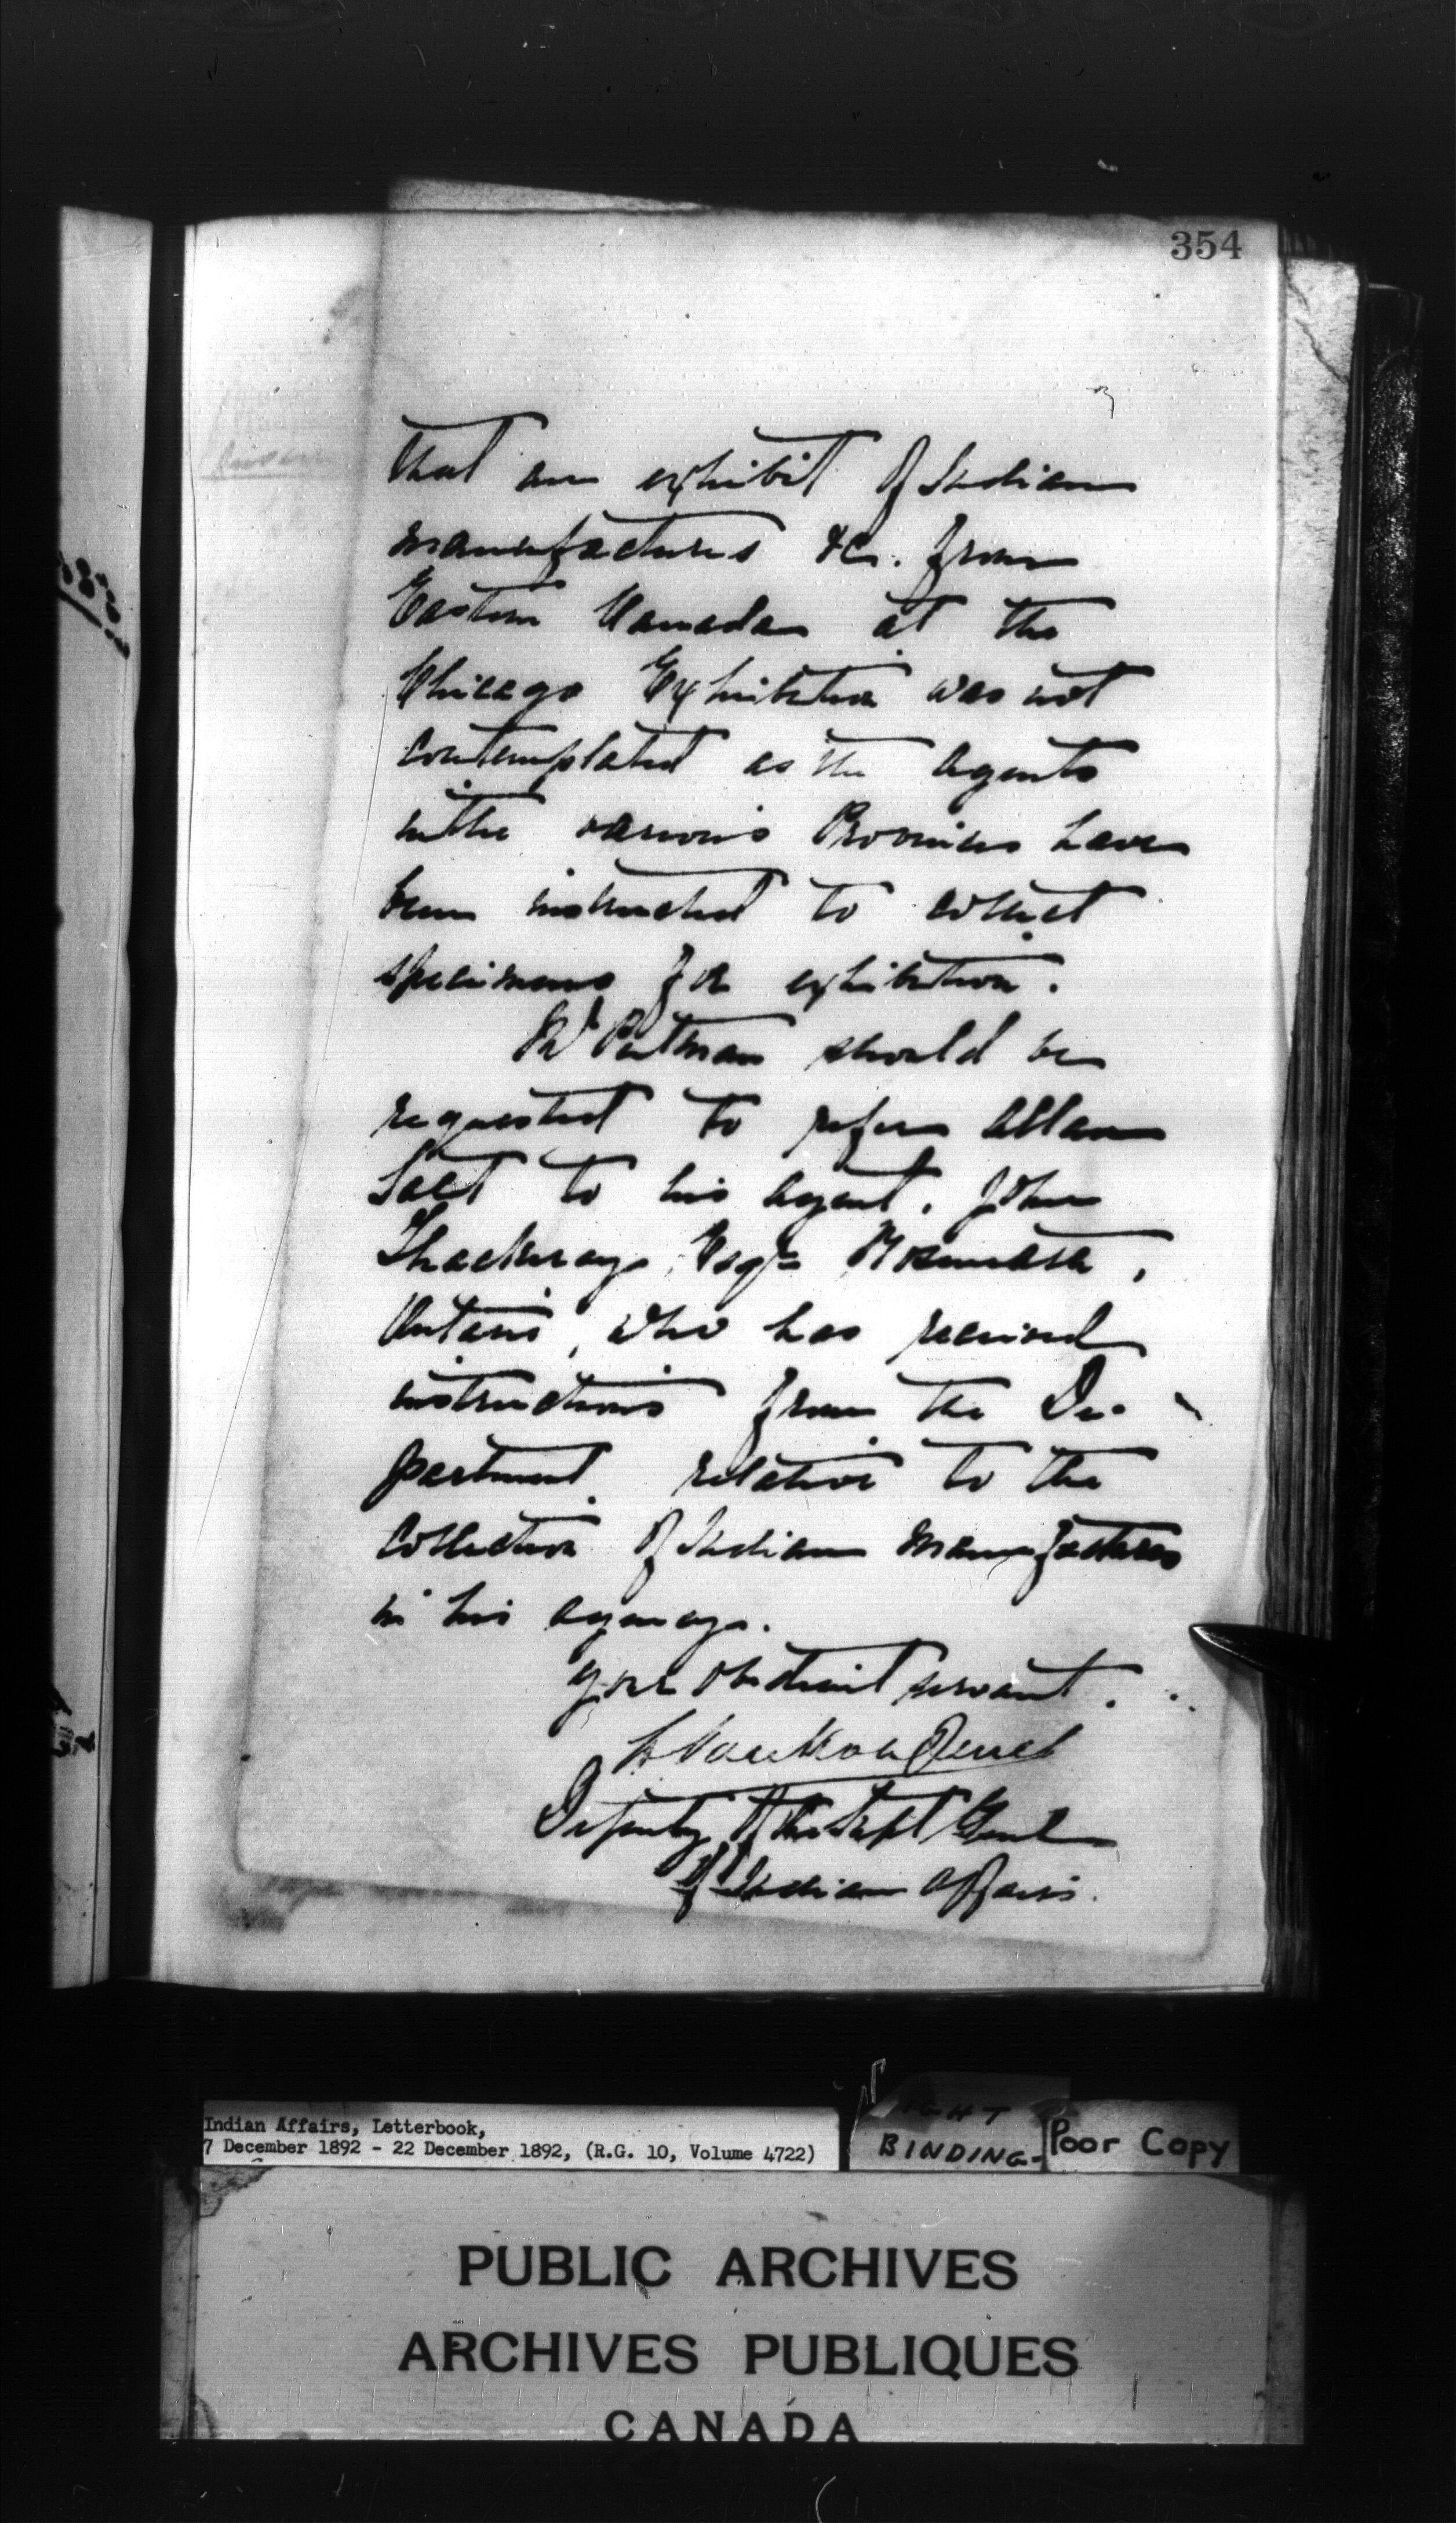 354
that an exhibit of Indian
manufactures &c. from
Eastern Canada at the
Chicago Exhibition was not
contemplated as the agents
in the various Provinces have
been instructed to collect
specimens for exhibition.
Mr Putman should be
requested to refer Allan
Salt to his agent, John
Thackeray, Esqre Roseneath,
Ontario, who has received
instructions from the De-
partment relative to the
collection of Indian manufactures
in his agency.
Your obedient servant.
L Vankoughnet
Deputy of the Supt Genl
of Indian Affairs.
Indian Affairs, Letterbook,
7 December 1892 - 22 December 1892, (R.G. 10, Volume 4722)
BINDING-
Poor Copy
PUBLIC ARCHIVES
ARCHIVES PUBLIQUES
CANADA